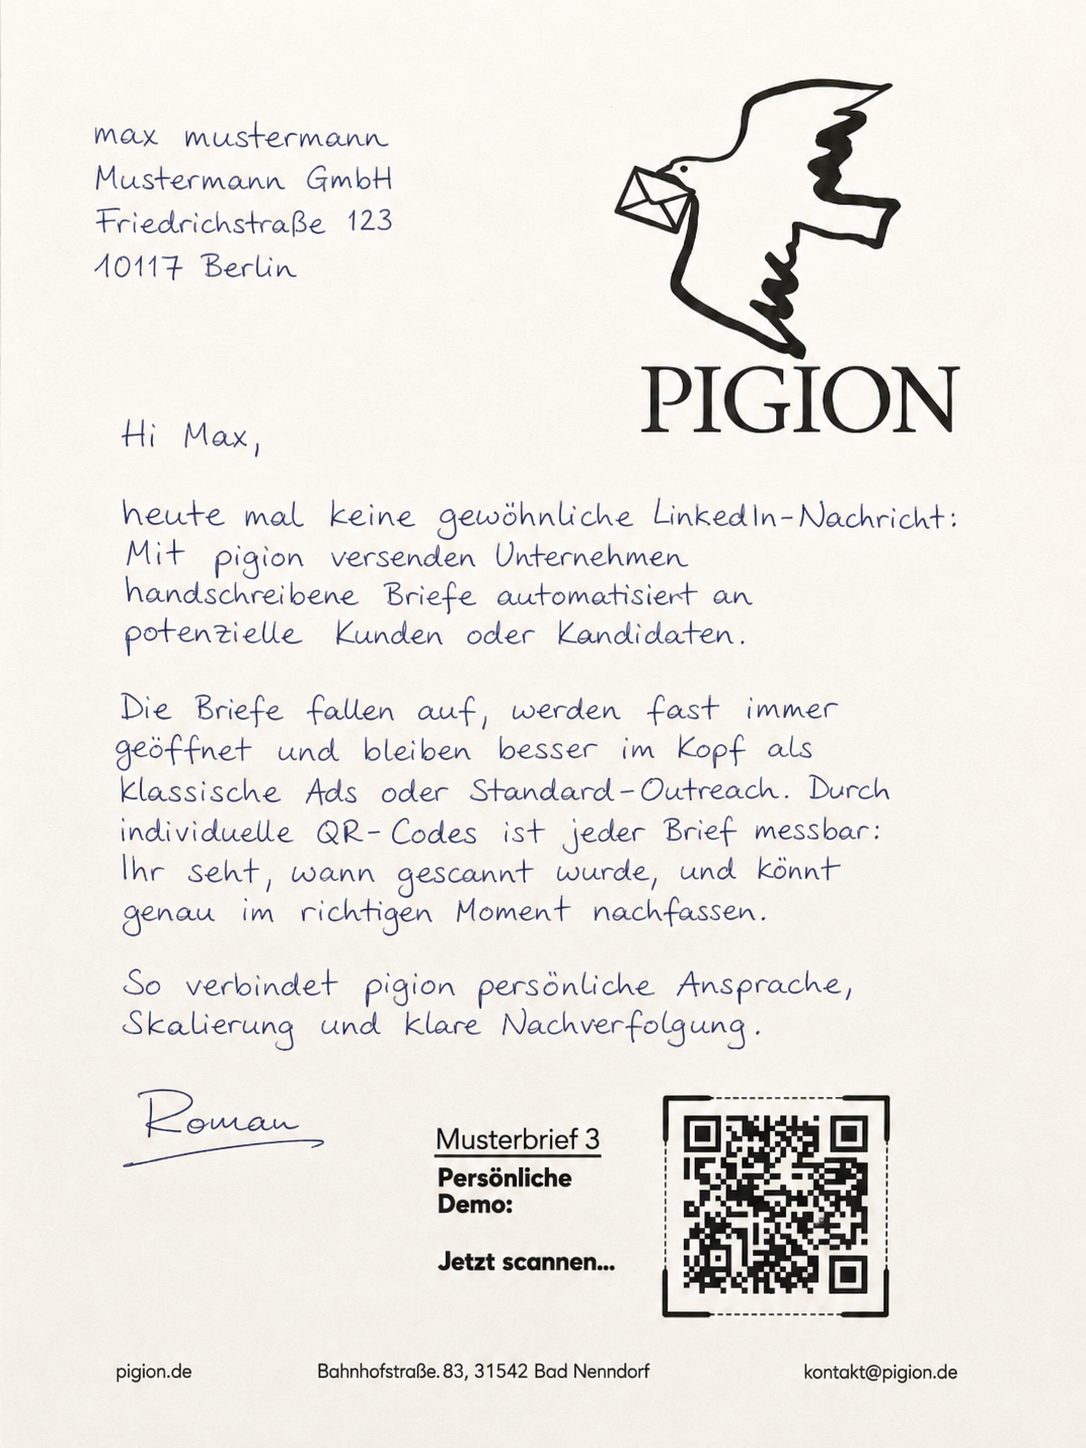 max mustermann
Mustermann GmbH
Friedrichstraße 123
10117 Berlin
PIGION
Hi Max,
heute mal keine gewöhnliche LinkedIn-Nachricht:
Mit pigion versenden Unternehmen
handschreibene Briefe automatisiert an
potenzielle Kunden oder Kandidaten.
Die Briefe fallen auf, werden fast immer
geöffnet und bleiben besser im Kopf als
klassische Ads oder Standard-Outreach. Durch
individuelle QR-Codes ist jeder Brief messbar:
Ihr seht, wann gescannt wurde, und könnt
genau im richtigen Moment nachfassen.
So verbindet pigion persönliche Ansprache,
Skalierung und klare Nachverfolgung.
Roman
Musterbrief 3
Persönliche
Demo:
Jetzt scannen...
pigion.de Bahnhofstraße. 83, 31542 Bad Nenndorf kontakt@pigion.de